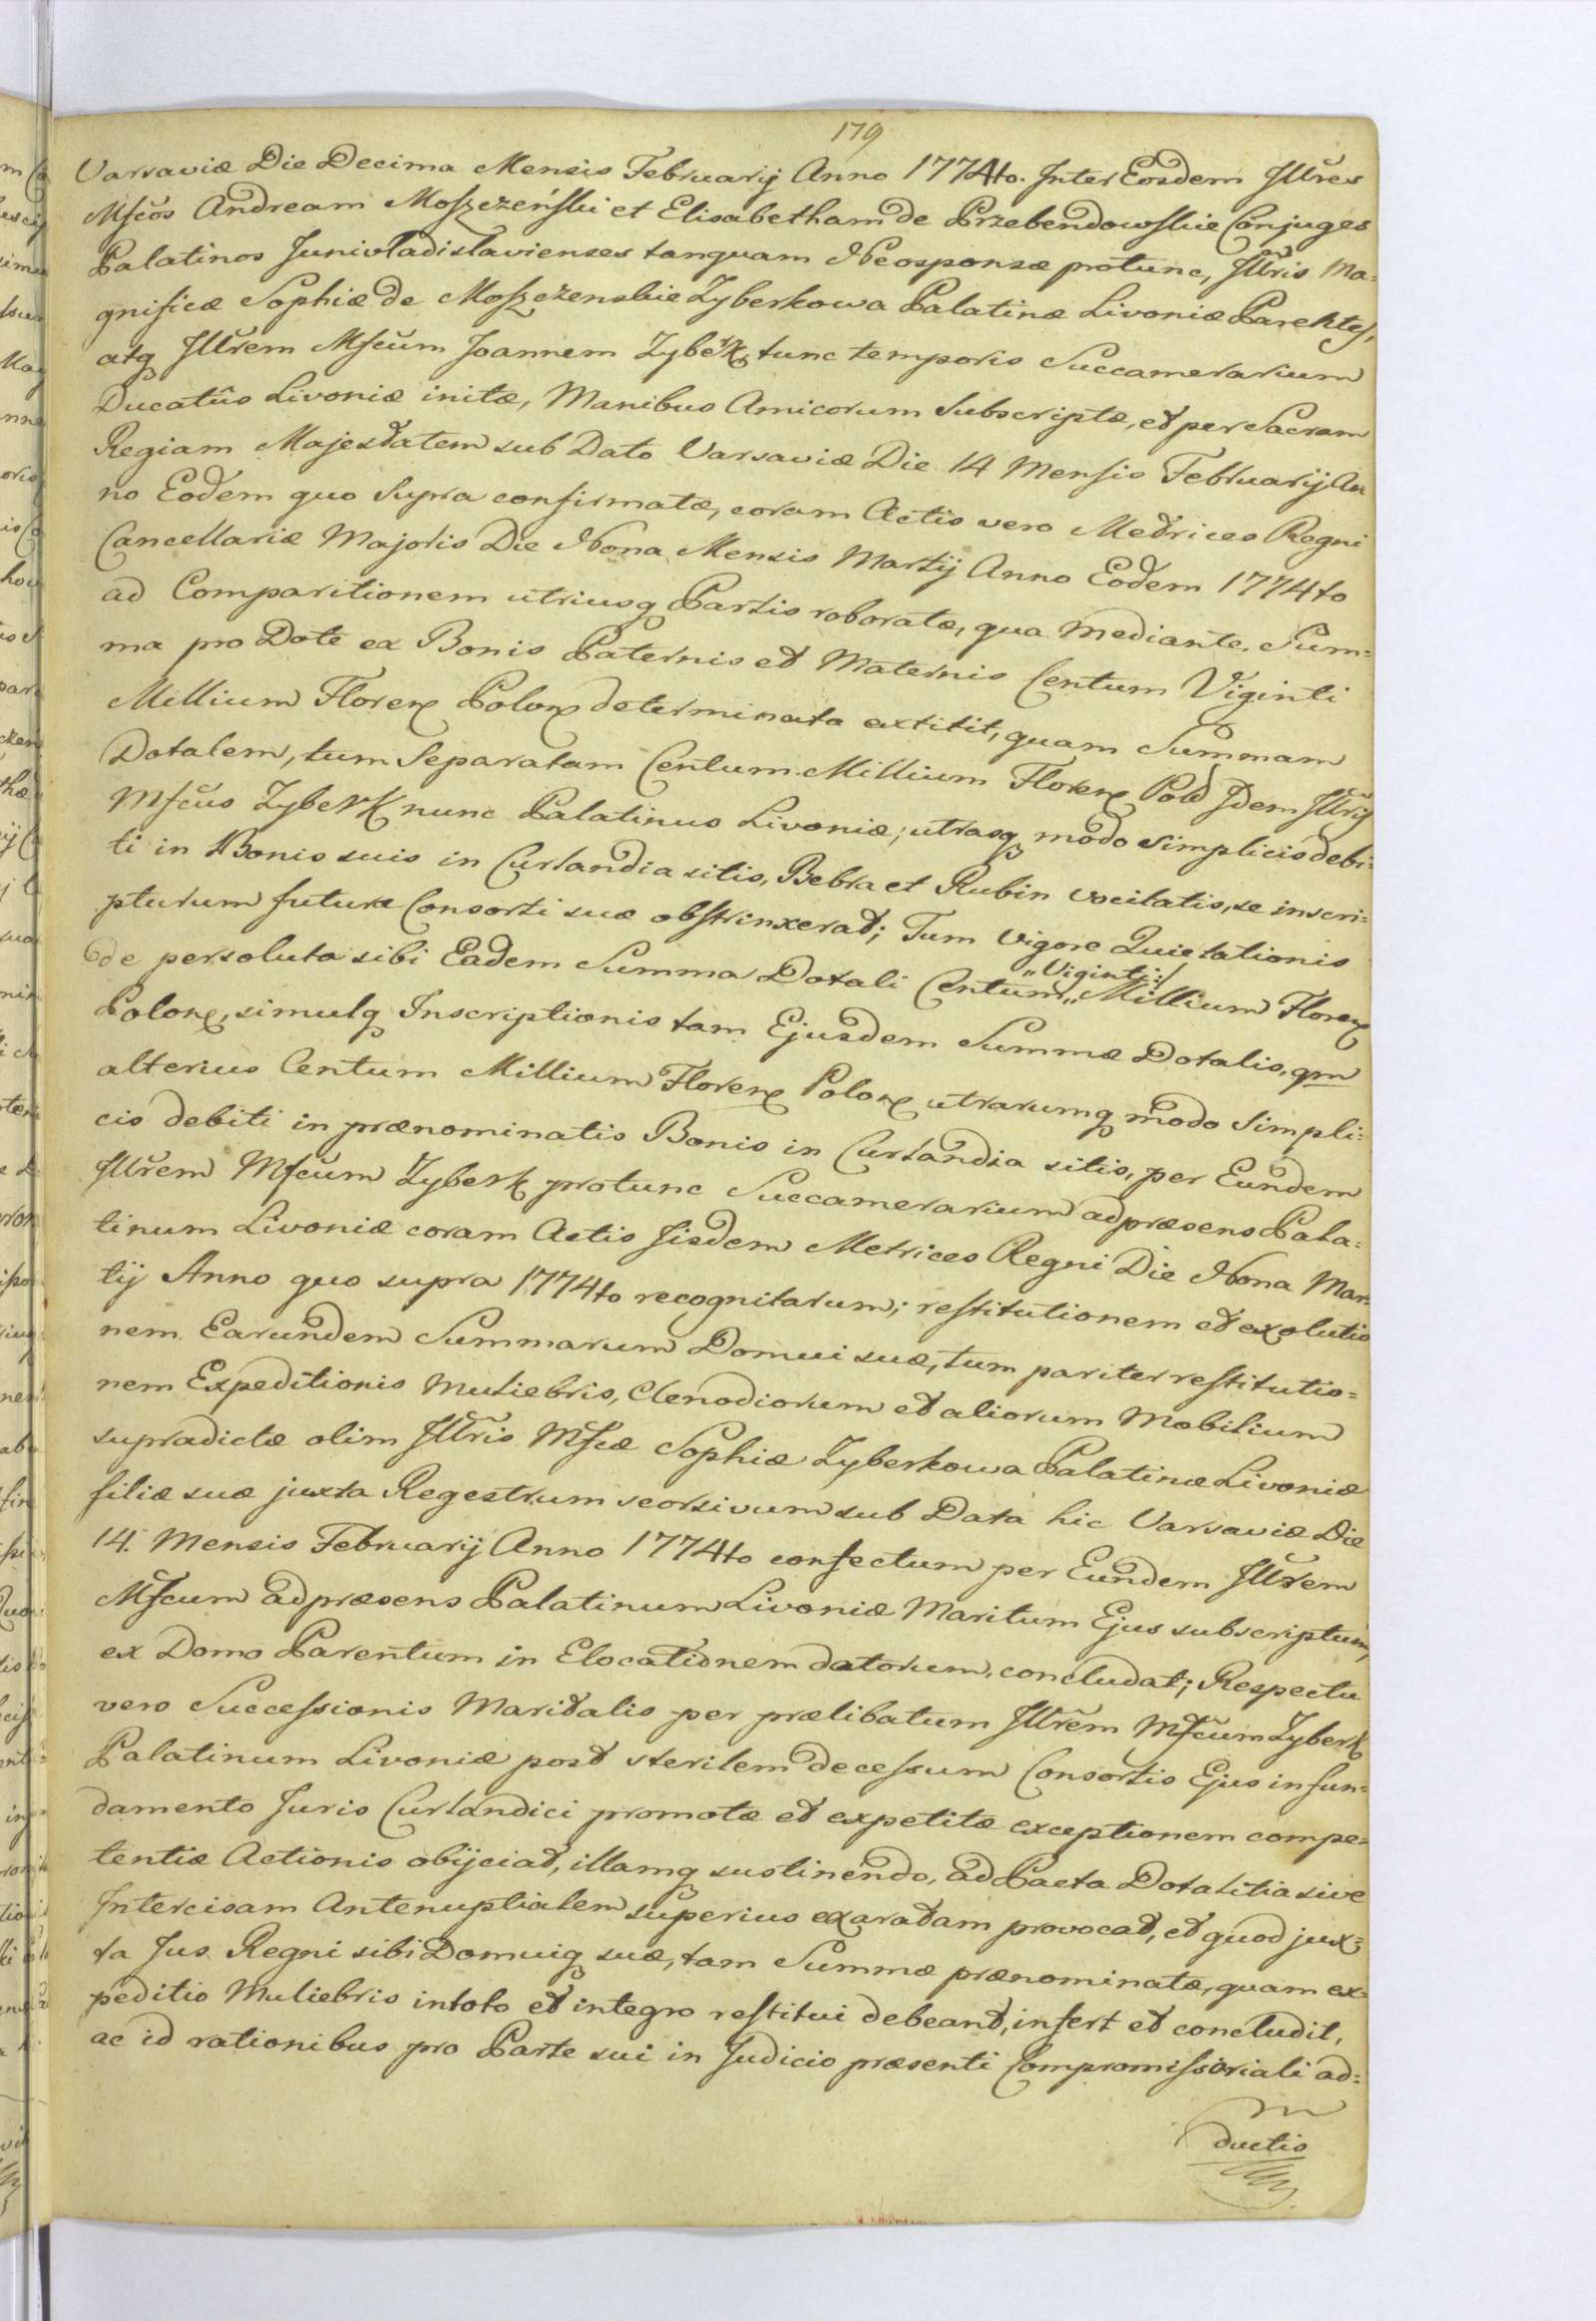 179
Varsaviæ Die Decima Mensis Februarij Anno 1774to. Inter Eosdem Jllr̃es
Mf̃cos Andream Moszczeński et Elisabetham de Przebendowskie Conjuges
Palatinos Junivladislavienses tanquam Neosponsæ protunc, Jllr̃is Ma=
gnificæ Sophiæ de Moszczenskie Zyberkowa Palatinæ Livoniæ Parentes,
atq Jllr̃em Mf̃cum Joannem Zyberk, tunc temporis Succamerarium
Ducatûs Livoniæ initæ, Manibus Amicorum Subscriptæ, et per Sacram
Regiam Majestatem sub Dato Varsaviæ Die 14 Mensis Februarij An
no Eodem quo Supra confirmatæ, coram Actis vero Metrices Regni
Cancellariæ Majoris Die Nona Mensis Martij Anno Eodem 1774to
ad Comparitionem utriusq Partis roboratæ, qua mediante. Sum=
ma pro Dote ex Bonis Paternis et Maternis Centum Viginti
Millium Floren Polon determinata extitit, quam Summam
Dotalem, tum Separatam Centum Millium Floren Pol Idem Jllr̃is
Mf̃cus Zyberk nunc Palatinus Livoniæ; utrasq modo simplicis debi=
ti in Bonis suis in Curlandia sitis, Bebra et Rubin vocitatis, se inscri=
pturum futuræ Consorti suæ obstrinxerat; Tum vigore Quietationis
de persoluta sibi Eadem Summa Dotali Centum „Viginti:/ Millium Floren
Polon, simulq Inscriptionis tam Ejusdem Summæ Dotalis, qm
alterius Centum Millium Floren Polon utrarumq modo Simpli=
cis debiti in prænominatis Bonis in Curlandia sitis, per Eundem
Jllr̃em Mf̃cum Zyberk protunc Succamerarium ad præsens Pala=
tinum Livoniæ coram Actis Iisdem Metrices Regni Die Nona Mar=
tij Anno quo supra 1774to recognitarum; restitutionem et exolutio
nem Earundem Summarum Domui suæ, tum pariter restitutio=
nem Expeditionis Muliebris, Clenodiorum et aliorum Mobilium
supradictæ olim Jllr̃is Mf̃cæ Sophiæ Zyberkowa Palatinæ Livoniæ
filiæ suæ juxta Regestrum seorsivum sub Data hic Varsaviæ Die
14. Mensis Februarij Anno 1774to confectum per Eundem Jllr̃em
Mf̃cum ad præsens Palatinum Livoniæ Maritum Ejus subscriptum,
ex Domo Parentum in Elocationem datorum, concludat; Respectu
vero Successionis Maritalis per prælibatum Jllr̃em Mf̃cum Zyberk
Palatinum Livoniæ post sterilem decessum Consortis Ejus in fun=
damento Juris Curlandici promotæ et expetitæ exceptionem compe=
tentiæ Actionis obijciat, illamq sustinendo, ad Pacta Dotalitia sive
Intercisam Antenuptialem superius exaratam provocat, et quod jux=
ta Jus Regni sibi Domuiq suæ, tam Summæ prænominatæ, quam ex=
peditio Muliebris in toto et integro restitui debeant, infert et concludit,
ac id rationibus pro Parte sui in Judicio præsenti Compromissoriali ad=
ductis